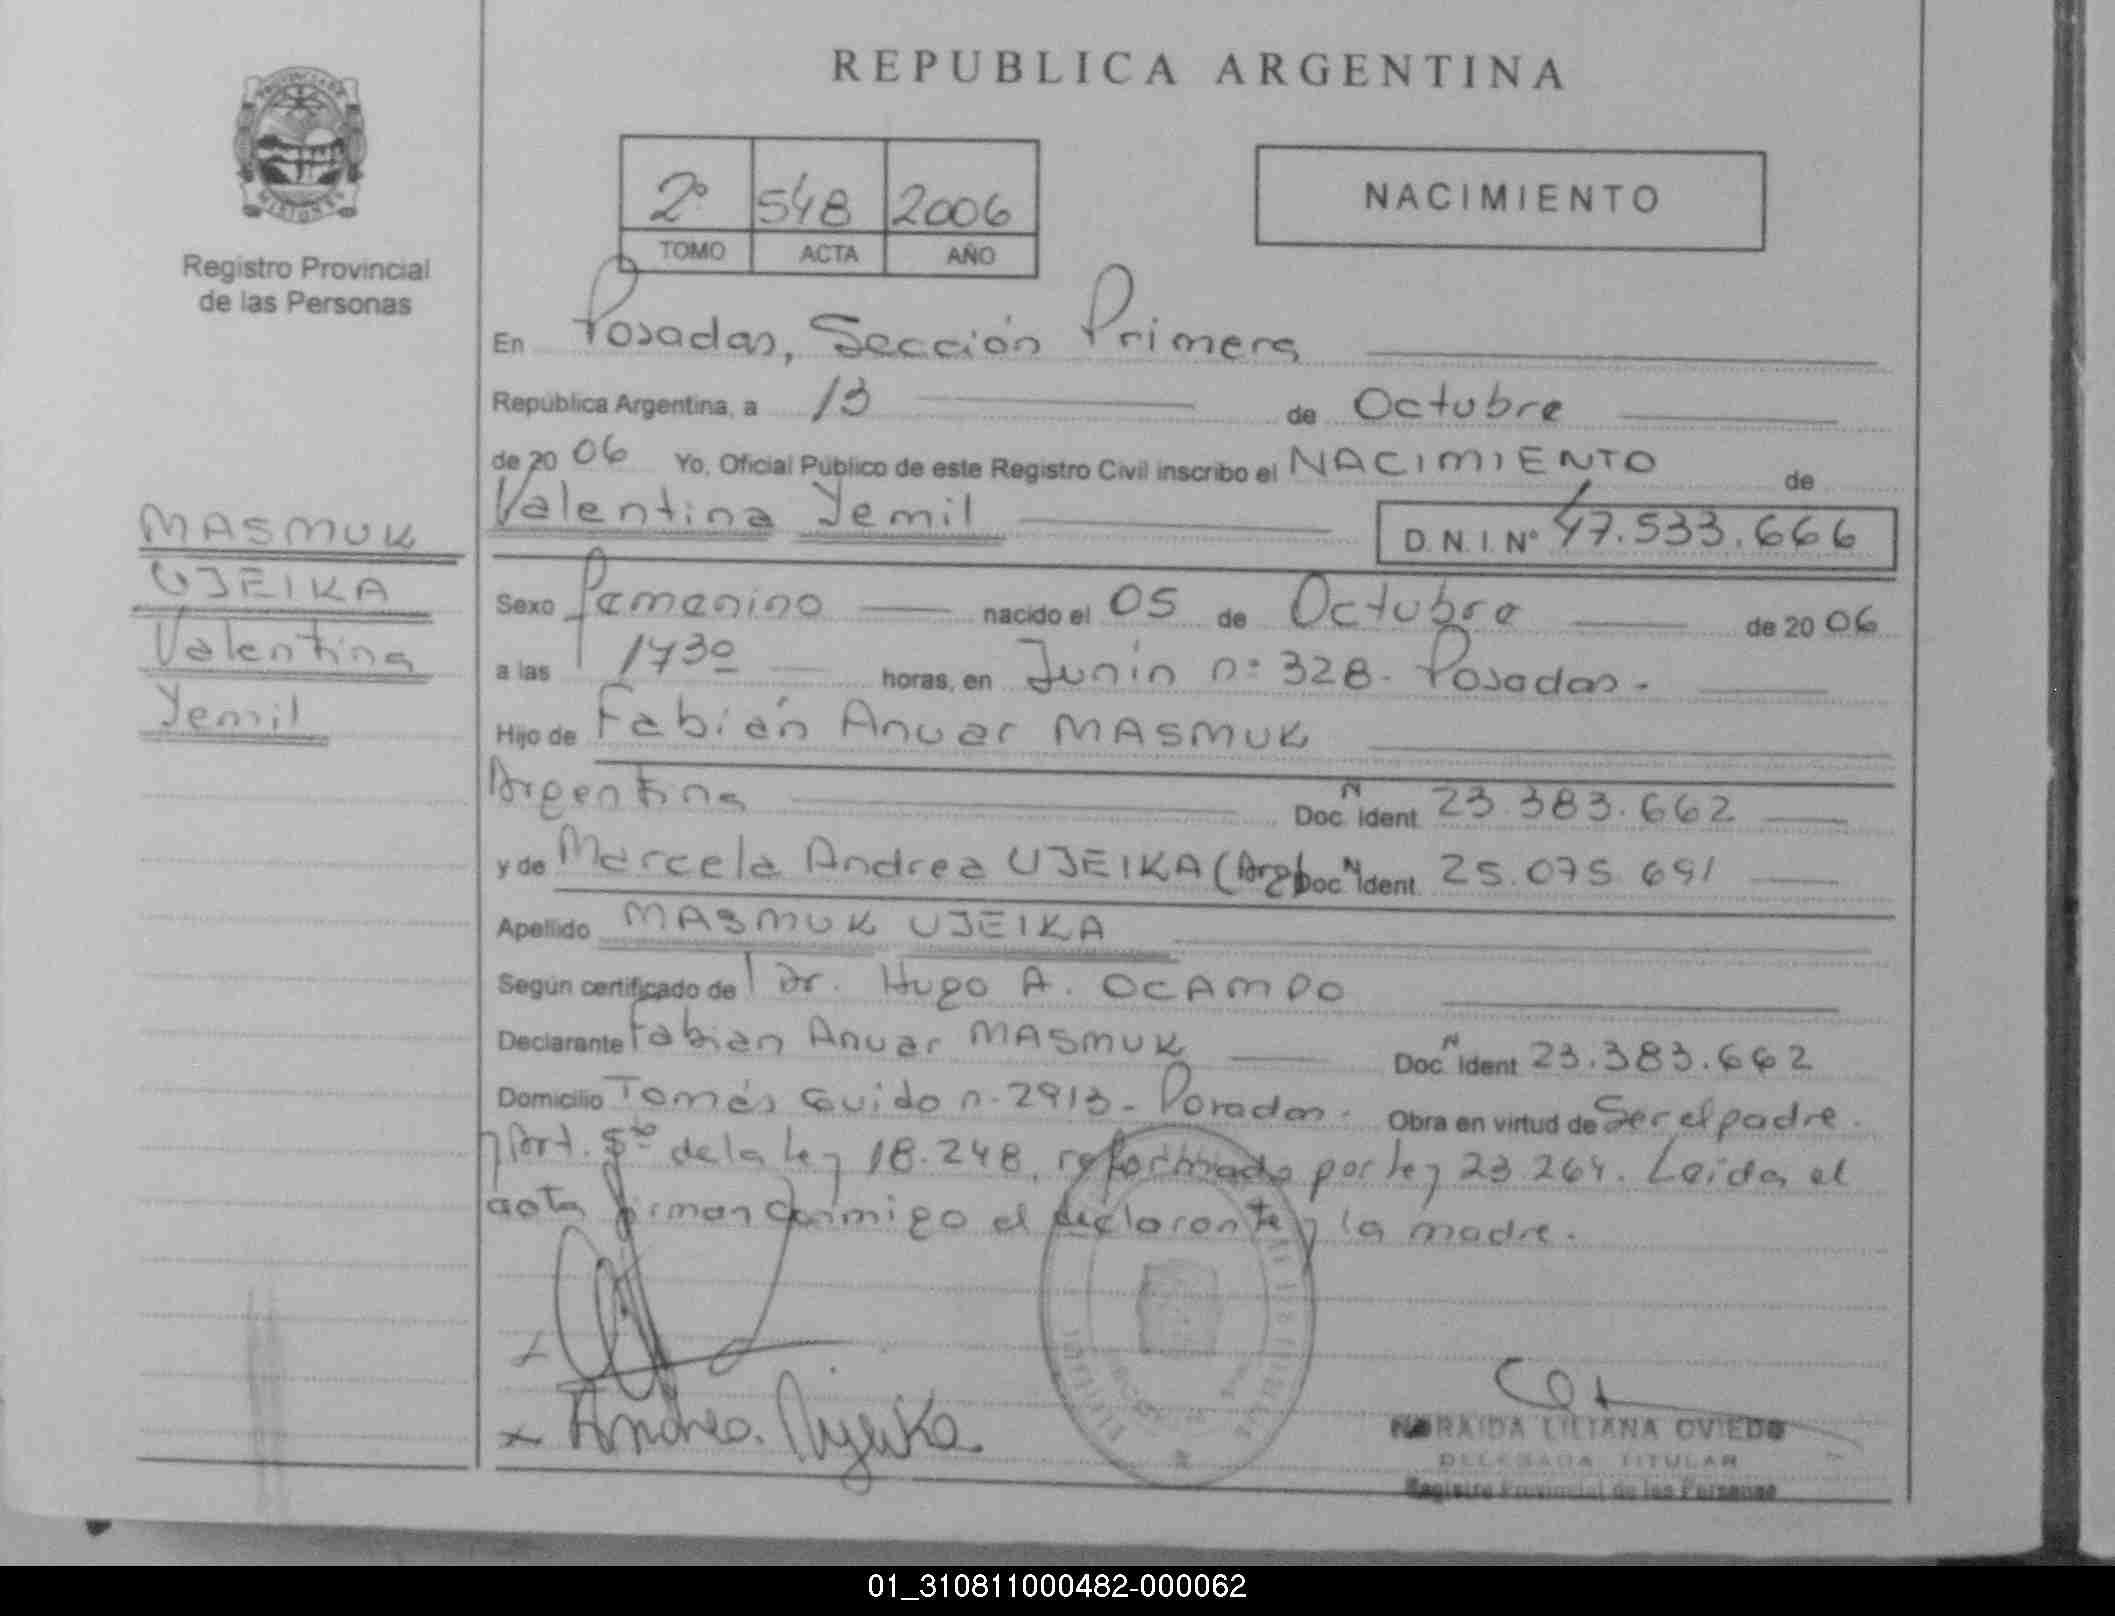 REPUBLICA ARGENTINA
PROVINCIA DE
MISIONES
Registro Provincial
de las Personas
2° 548 2006
TOMO ACTA AÑO
NACIMIENTO
En Posadas, Sección Primera
República Argentina, a 13 de Octubre
de 2006 Yo, Oficial Público de este Registro Civil inscribo el NACIMIENTO de
Valentina Yemil D.N.I. N° 47.533.666
MASMUK
UJEIKA
Valentina
Yemil
Sexo femenino nacido el 05 de Octubre de 2006
a las 1730 horas, en Junín n° 328. Posadas.
Hijo de Fabián Anuar MASMUK
Argentina Doc. N Ident. 23.383.662
y de Marcela Andrea UJEIKA (Arg) Doc. N Ident. 25.075.691
Apellido MASMUK UJEIKA
Según certificado de Dr. Hugo A. OCAMPO
Declarante Fabián Anuar MASMUK Doc. N Ident. 23.383.662
Domicilio Tomás Guido n. 2913 - Posadas. Obra en virtud de Ser el padre.
y Art. 5to de la ley 18.248, reformado por ley 23.264. Leída el
acta firman conmigo el declarante y la madre.
x
x Andrea Ujeika
NORAIDA LILIANA OVIEDO
DELEGADA TITULAR
Registro Provincial de las Personas
01_310811000482-000062